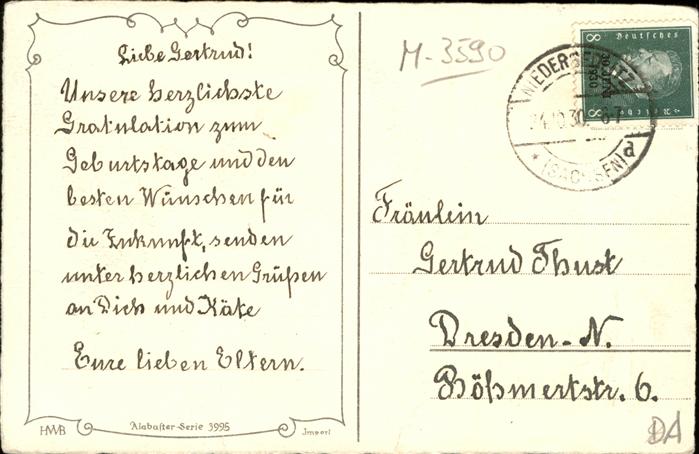 Liebe Gertrud!
Unsere herzlichste
Gratulation zum
Geburtstage und den
besten Wünschen für
die Zukunft, senden
unter herzlichen Grüßen
an Dich und Käte
Eure lieben Eltern.
HWB
Alabaster-Serie 3995
Import
M-3590
8 Deutsches
8
NIEDERSEDLITZ
10.30. 6-7
d
* (SACHSEN)
Fräulein
Gertrud Thust
Dresden-N.
Bößmertstr. 6.
DA